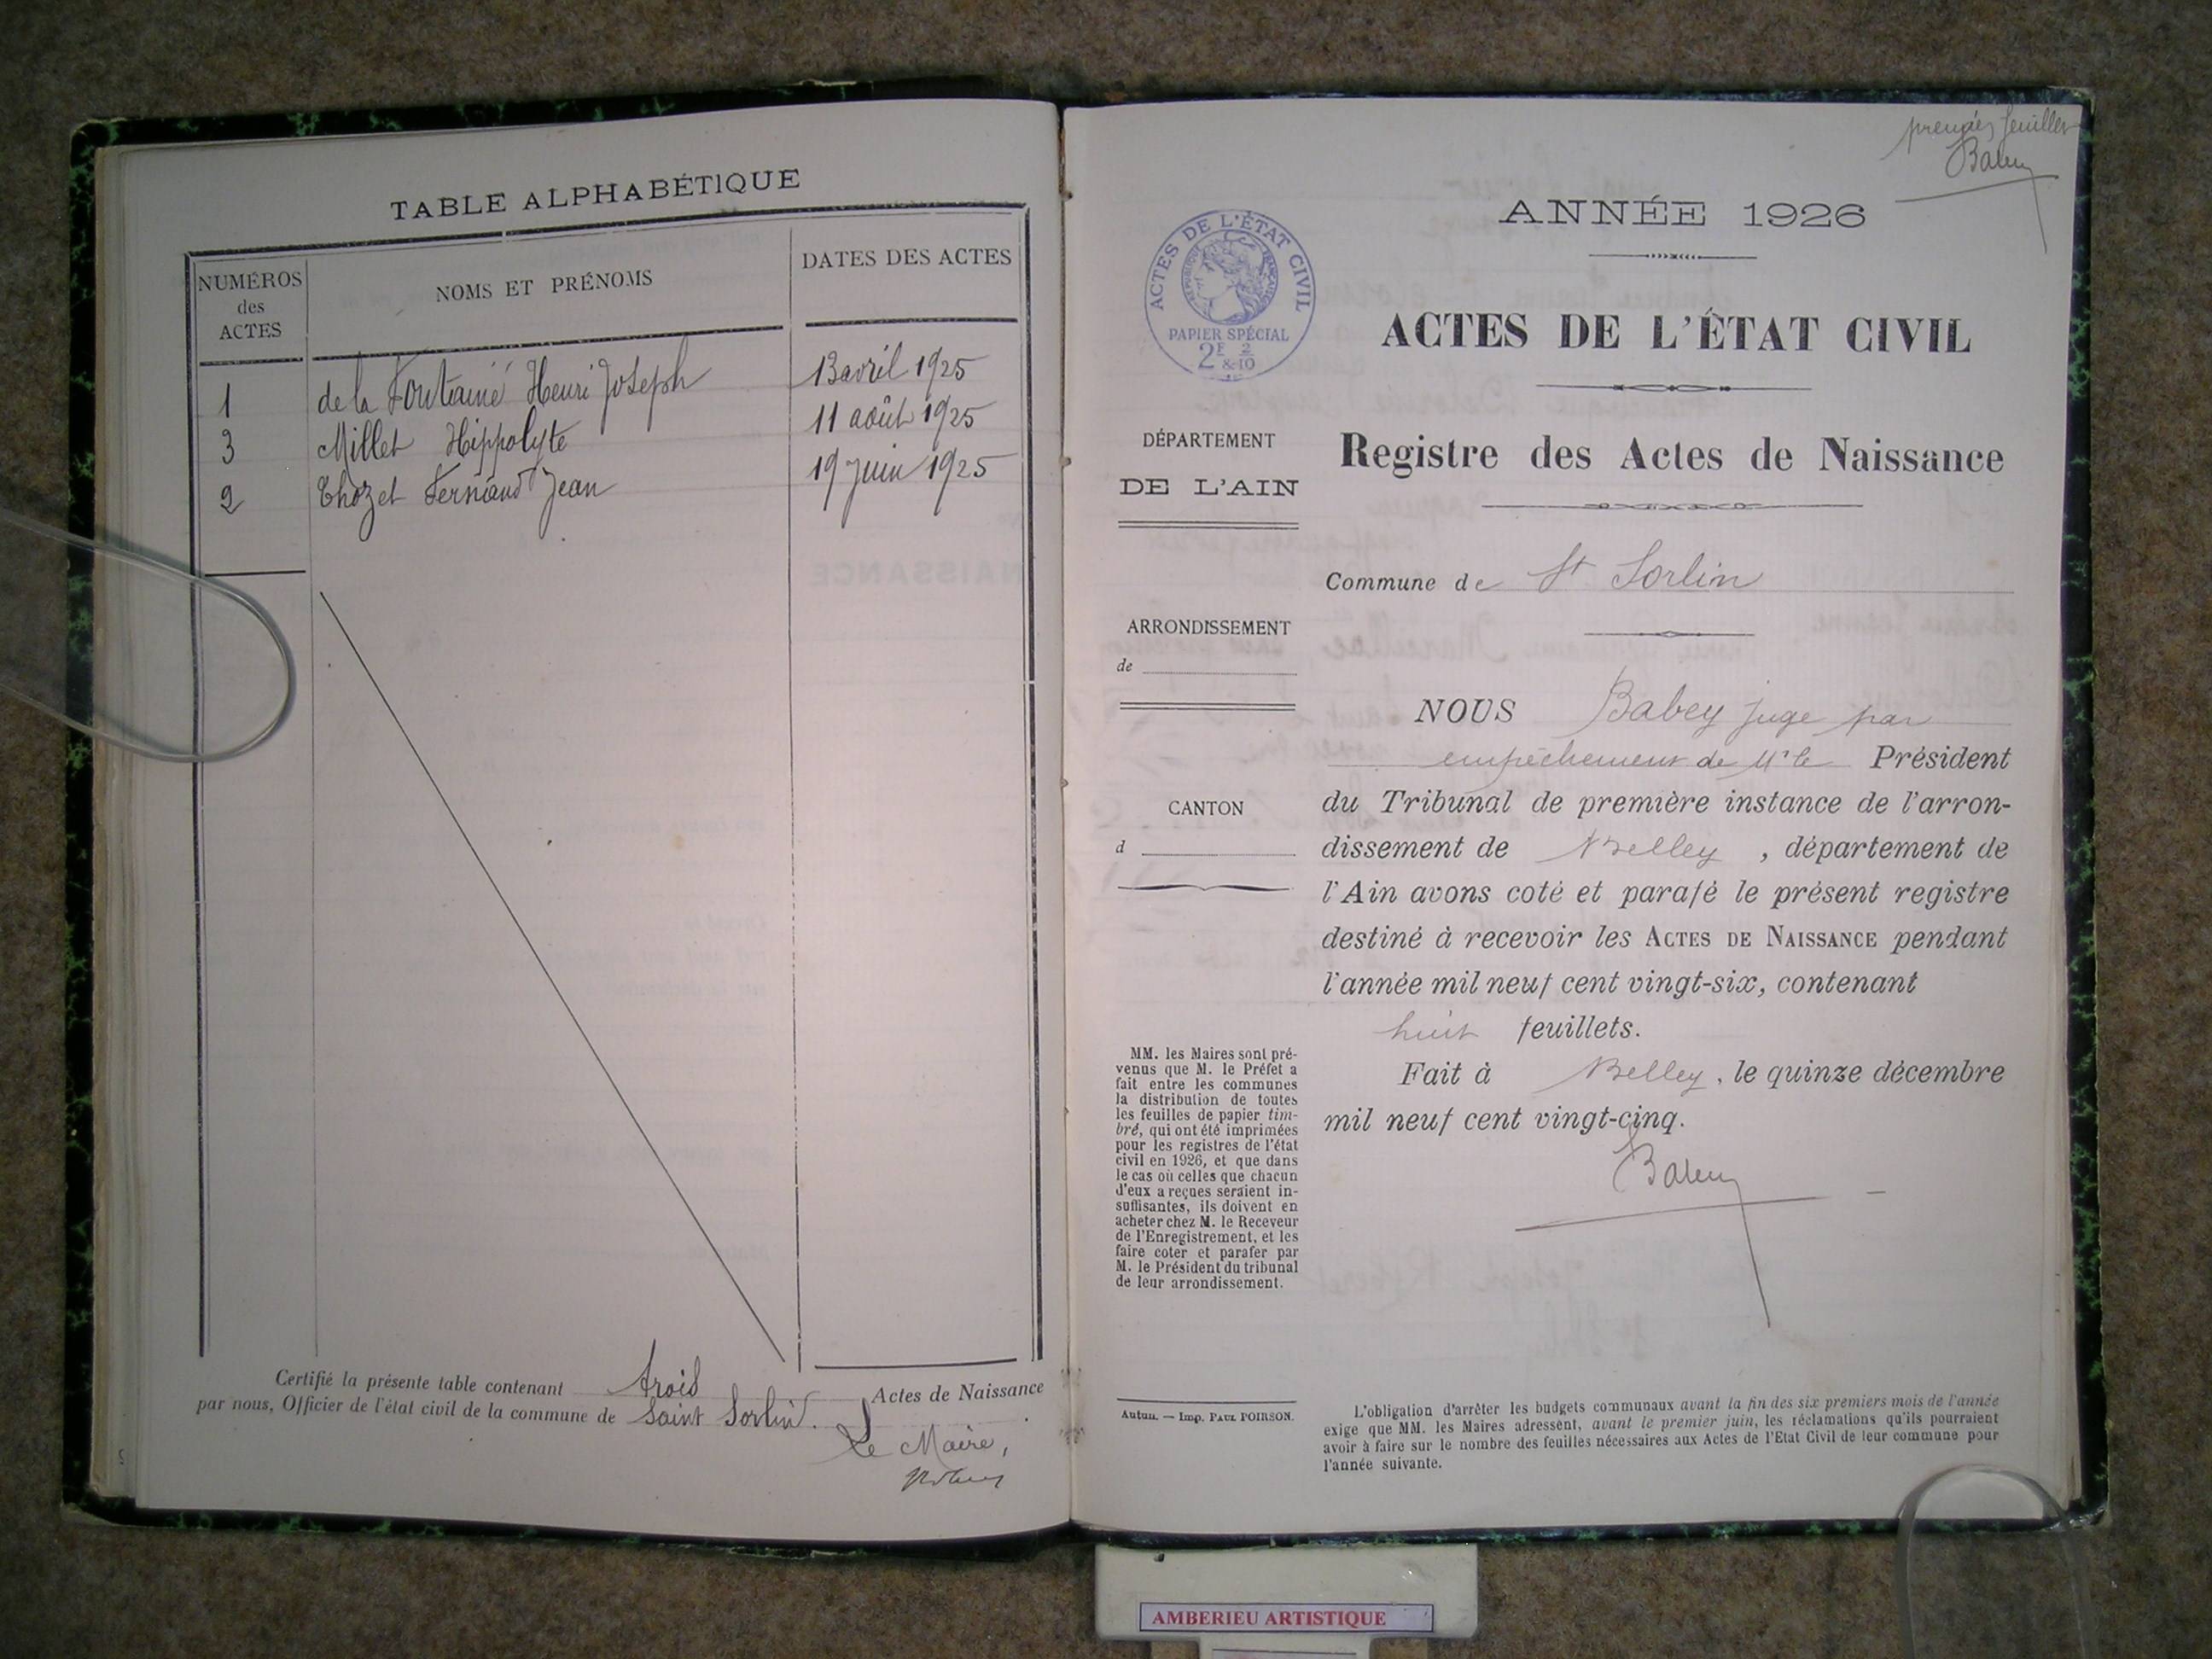 TABLE ALPHABÉTIQUE
NUMÉROS
des
ACTES
NOMS ET PRÉNOMS
DATES DES ACTES
1 de la Fontaine Henri Joseph 13 avril 1925
3 Millet Hippolyte 11 août 1925
2 Thozet Fernand Jean 19 juin 1925
Certifié la présente table contenant trois Actes de Naissance
par nous, Officier de l'état civil de la commune de Saint Sorlin.
Le Maire,
premier feuillet
Babey
ANNÉE 1926
ACTES DE L'ÉTAT CIVIL
RÉPUBLIQUE FRANÇAISE
PAPIER SPÉCIAL
2F 2
& 10
ACTES DE L'ÉTAT CIVIL
Registre des Actes de Naissance
DÉPARTEMENT
DE L'AIN
ARRONDISSEMENT
de
CANTON
d
Commune de St Sorlin
NOUS Babey juge par
empêchement de Mr le Président
du Tribunal de première instance de l'arron-
dissement de Belley, département de
l'Ain avons coté et parafé le présent registre
destiné à recevoir les ACTES DE NAISSANCE pendant
l'année mil neuf cent vingt-six, contenant
huit feuillets.
Fait à Belley, le quinze décembre
mil neuf cent vingt-cinq.
Babey
MM. les Maires sont pré-
venus que M. le Préfet a
fait entre les communes
la distribution de toutes
les feuilles de papier tim-
bré, qui ont été imprimées
pour les registres de l'état
civil en 1926, et que dans
le cas où celles que chacun
d'eux a reçues seraient in-
suffisantes, ils doivent en
acheter chez M. le Receveur
de l'Enregistrement, et les
faire coter et parafer par
M. le Président du tribunal
de leur arrondissement.
Autun. — Imp. PAUL POIRSON.
L'obligation d'arrêter les budgets communaux avant la fin des six premiers mois de l'année
exige que MM. les Maires adressent, avant le premier juin, les réclamations qu'ils pourraient
avoir à faire sur le nombre des feuilles nécessaires aux Actes de l'Etat Civil de leur commune pour
l'année suivante.
AMBERIEU ARTISTIQUE